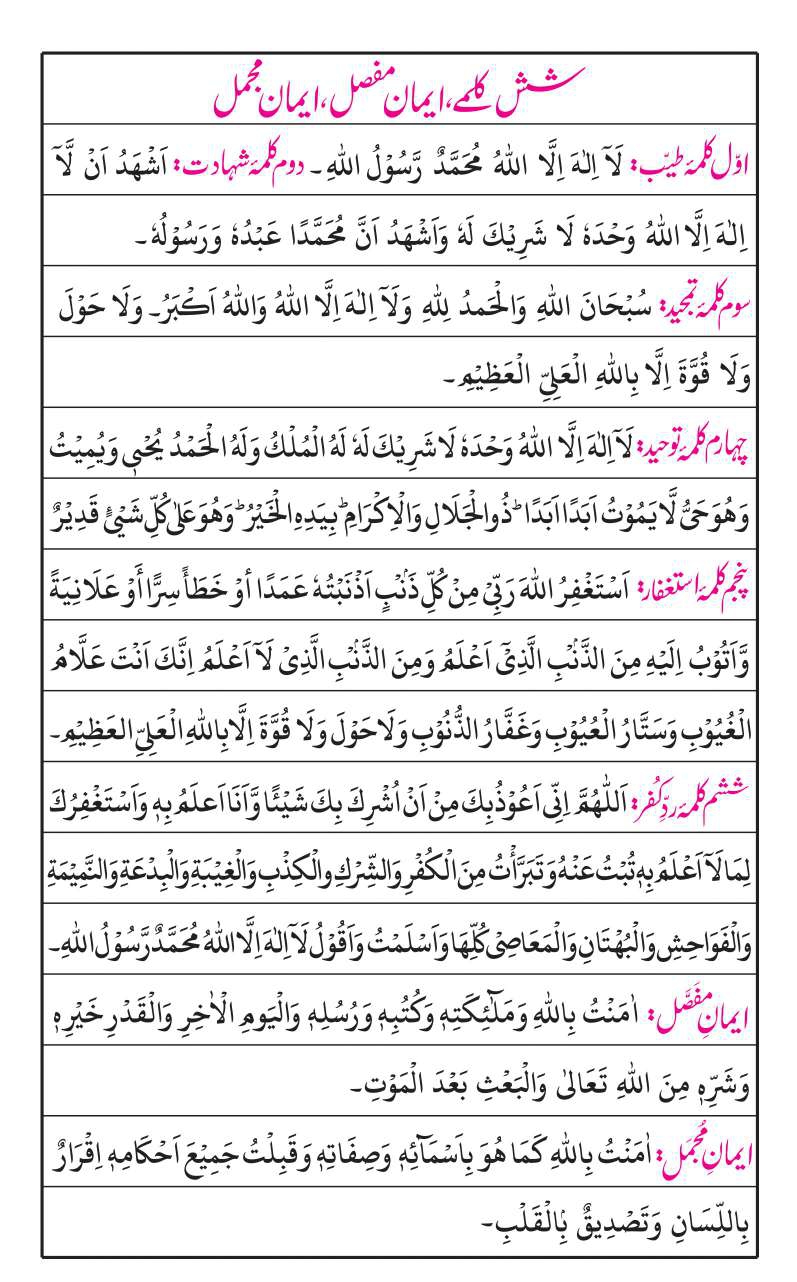 شش کلمے، ایمان مفصل، ایمان مجمل
اوّل کلمۂ طیّب: لَآ اِلٰهَ اِلَّا اللهُ مُحَمَّدٌ رَّسُوْلُ اللهِ۔ دوم کلمۂ شہادت: اَشْهَدُ اَنْ لَّآ
اِلٰهَ اِلَّا اللهُ وَحْدَهٗ لَا شَرِيْكَ لَهٗ وَاَشْهَدُ اَنَّ مُحَمَّدًا عَبْدُهٗ وَرَسُوْلُهٗ۔
سوم کلمۂ تمجید: سُبْحَانَ اللهِ وَالْحَمدُ لِلهِ وَلَآ اِلٰهَ اِلَّا اللهُ وَاللهُ اَكْبَرُ۔ وَلَا حَوْلَ
وَلَا قُوَّةَ اِلَّا بِاللهِ الْعَلِيِّ الْعَظِيْمِ۔
چہارم کلمۂ توحید: لَآ اِلٰهَ اِلَّا اللهُ وَحْدَهٗ لَا شَرِيْكَ لَهٗ لَهُ الْمُلْكُ وَلَهُ الْحَمْدُ يُحْىٖ وَيُمِيْتُ
وَهُوَ حَىٌّ لَّا يَمُوْتُ اَبَدًا اَبَدًا ؕ ذُو الْجَلَالِ وَالْاِكْرَامِ ؕ بِيَدِهِ الْخَيْرُ ؕ وَهُوَ عَلٰى كُلِّ شَيْئٍ قَدِيْرٌ
پنجم کلمۂ استغفار: اَسْتَغْفِرُ اللهَ رَبِّيْ مِنْ كُلِّ ذَنْبٍ اَذْنَبْتُهٗ عَمَدًا أوْ خَطَأً سِرًّا أَوْ عَلَانِيَةً
وَّاَتُوْبُ اِلَيْهِ مِنَ الذَّنْبِ الَّذِىْٓ اَعْلَمُ وَمِنَ الذَّنْبِ الَّذِىْ لَآ اَعْلَمُ اِنَّكَ اَنْتَ عَلَّامُ
الْغُيُوْبِ وَسَتَّارُ الْعُيُوْبِ وَغَفَّارُ الذُّنُوْبِ وَلَا حَوْلَ وَلَا قُوَّةَ اِلَّا بِاللهِ الْعَلِيِّ العَظِيْمِ۔
ششم کلمۂ ردِّ کفر: اَللّٰهُمَّ اِنِّى اَعُوْذُبِكَ مِنْ اَنْ اُشْرِكَ بِكَ شَيْئًا وَّاَنَا اَعلَمُ بِهٖ وَاَسْتَغْفِرُكَ
لِمَا لَآ اَعْلَمُ بِهٖ تُبْتُ عَنْهُ وَتَبَرَّأْتُ مِنَ الْكُفْرِ وَالشِّرْكِ والْكِذْبِ وَالْغِيْبَةِ وَالْبِدْعَةِ وَالنَّمِيْمَةِ
وَالْفَوَاحِشِ وَالْبُهْتَانِ وَالْمَعَاصِىْ كُلِّهَا وَاَسْلَمْتُ وَاَقُوْلُ لَآ اِلٰهَ اِلَّا اللهُ مُحَمَّدٌ رَّسُوْلُ اللهِ۔
ایمانِ مفَصَّل: اٰمَنْتُ بِاللهِ وَمَلٰٓئِكَتِهٖ وَكُتُبِهٖ وَرُسُلِهٖ وَالْيَومِ الْاٰخِرِ وَالْقَدْرِ خَيْرِهٖ
وَشَرِّهٖ مِنَ اللهِ تَعَالٰى وَالْبَعْثِ بَعْدَ الْمَوْتِ۔
ایمانِ مُجمَل: اٰمَنْتُ بِاللهِ كَمَا هُوَ بِاَسْمَآئِهٖ وَصِفَاتِهٖ وَقَبِلْتُ جَمِيْعَ اَحْكَامِهٖ اِقْرَارٌ
بِاللِّسَانِ وَتَصْدِيقٌ بِالْقَلْبِ۔